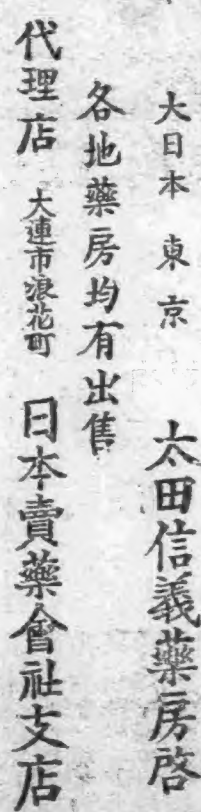 大日本東京 太田信義藥房啓
各地藥房均有出售
代理店 大連市浪花町 日本賣藥會社支店